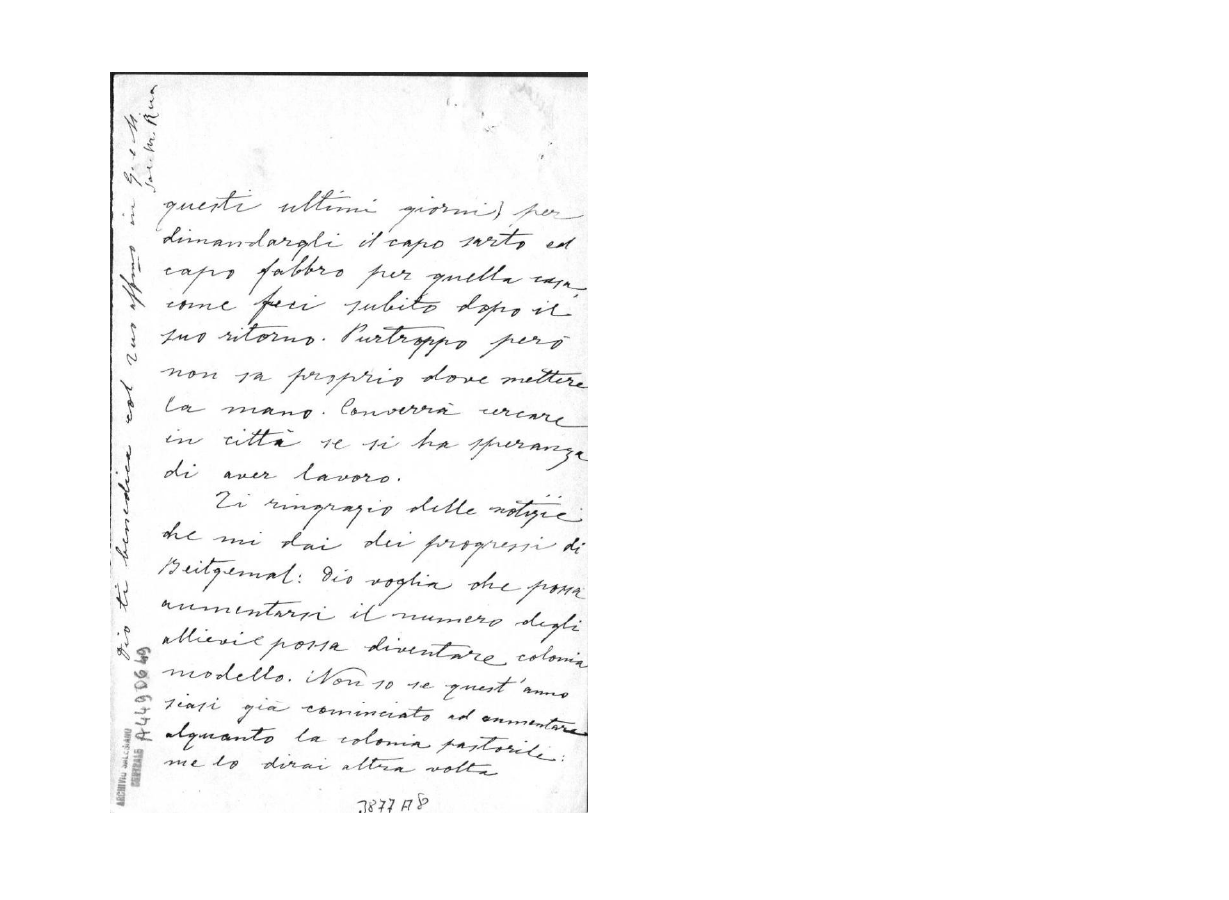 questi ultimi giorni) per
dimandargli il capo sarto ed
capo fabbro per quella casa,
come feci subito dopo il
suo ritorno. Purtroppo però
non sa proprio dove mettere
la mano. Converrà cercare
in città se si ha speranza
di aver lavoro.
Ti ringrazio delle notizie
che mi dai dei progressi di
Beitgemal: Dio voglia che possa
aumentarsi il numero degli
allievi e possa diventare colonia
modello. Non so se quest'anno
siasi già cominciato ad aumentare
alquanto la colonia pastorile:
me lo dirai altra volta
Dio ti benedica col tuo affmo in G. e M.
Sac. M. Rua
ARCHIVIO SALESIANO
CENTRALE
A4490649
3877 A8